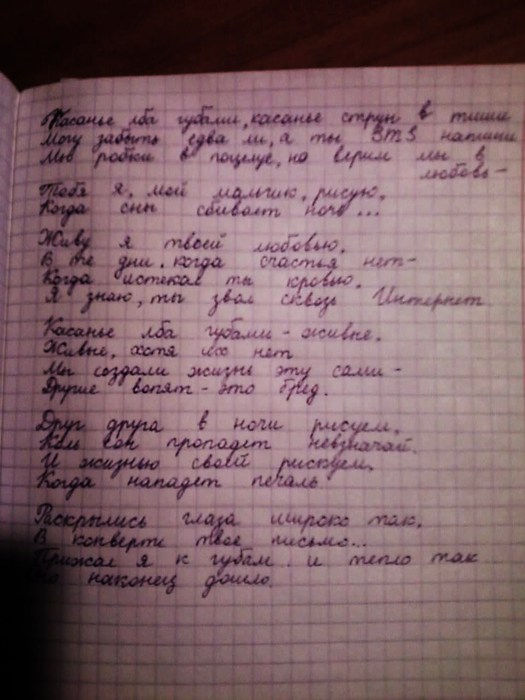 Касанье лба губами, касанье струн в тиши
Могу забыть едва ли, а ты ВТЗ напиши
Мы робки в поцелуе, но верим мы в
любовь -
Тебя я, мой мальчик, рисую,
Когда сны сбивает ночь...
Живу я твоей любовью,
В те дни, когда счастья нет -
Когда истекал ты кровью,
Я знаю, ты звал сквозь Интернет
Касанье лба губами - живые,
Живые, хотя их нет
Мы создали жизнь эту сами -
Другие вопят - это бред.
Друг друга в ночи рисуем,
Коль сон пропадет невзначай.
И жизнью своей рискуем,
Когда нападет печаль
Раскрылись глаза широко так,
В конверте твое письмо...
Прижал я к губам и тепло так
наконец дошло.